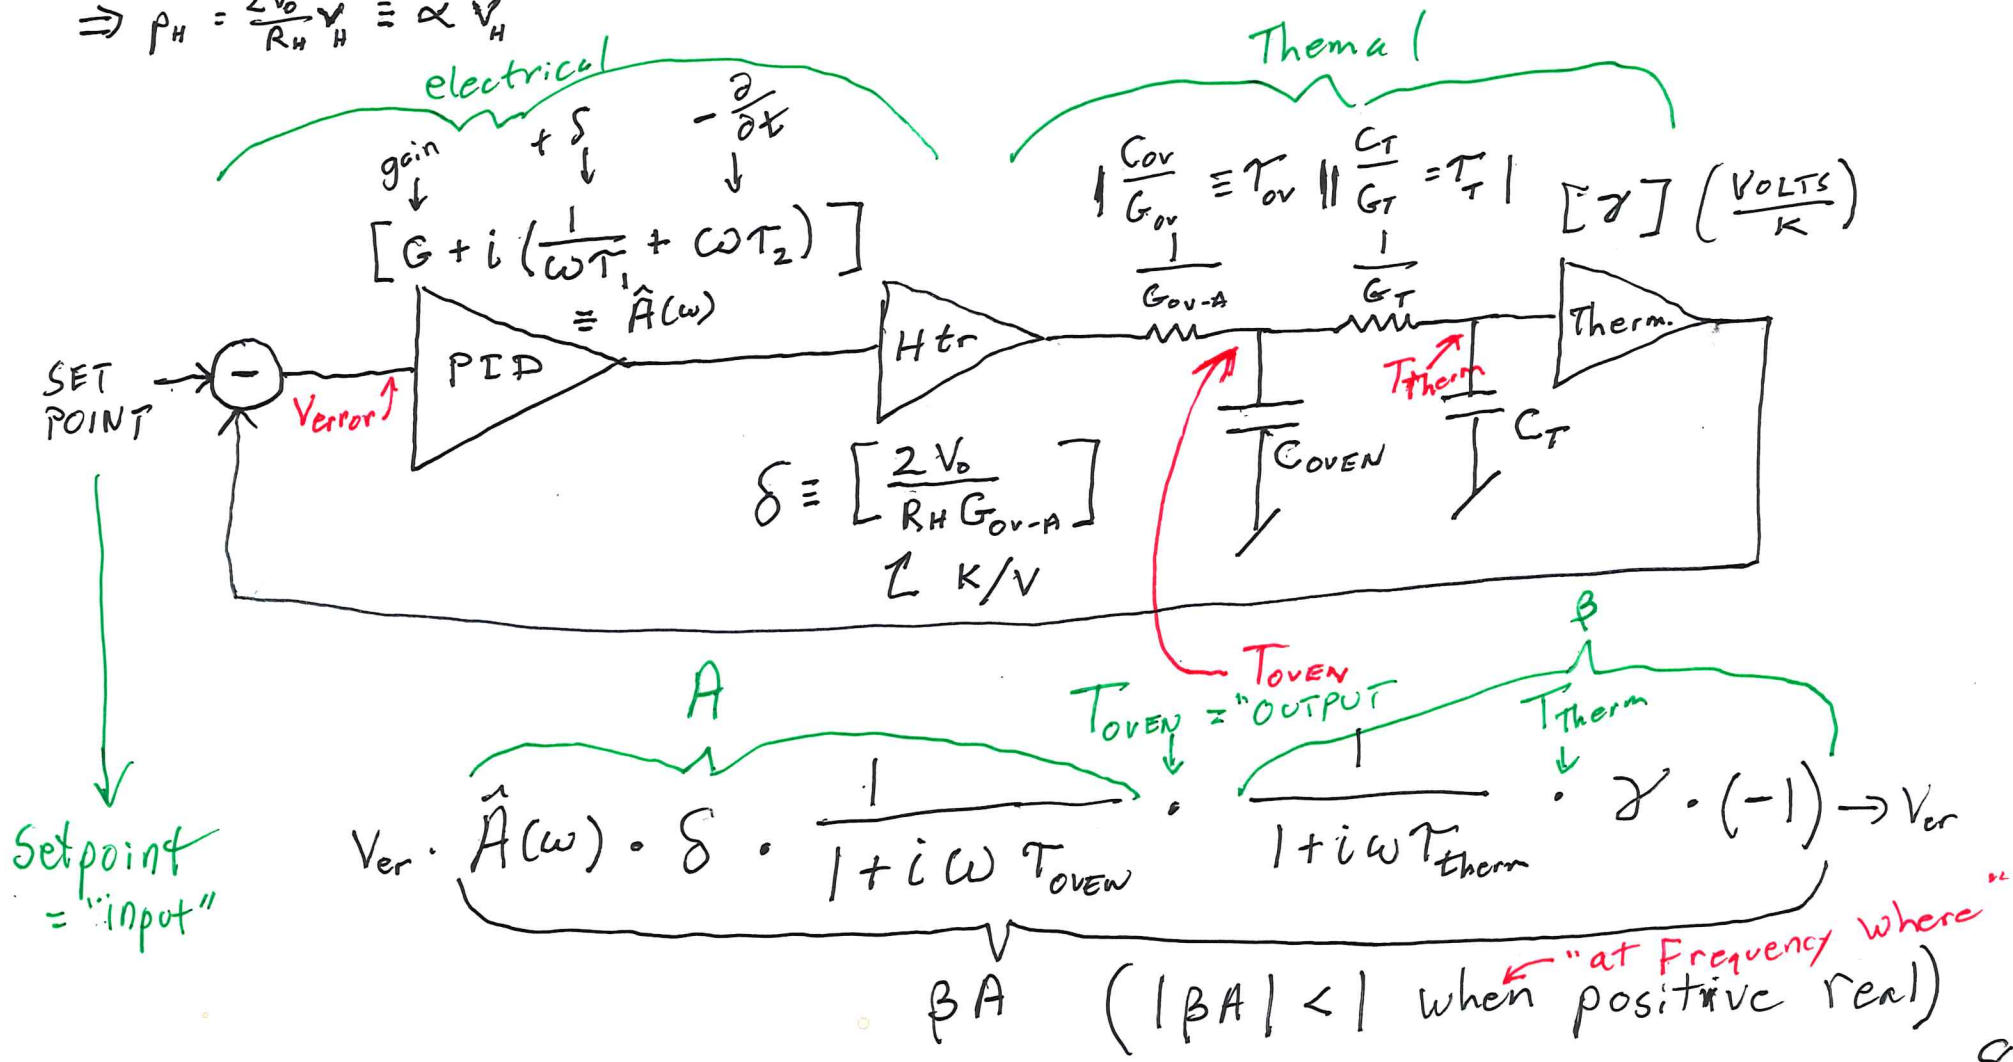 ⇒ P_H = 2V_0/R_H V_H ≡ α V_H
electrical
Themal
gain
+ δ
- ∂/∂t
[G + i (1/ωτ_1 + ωτ_2)]
≡ Â(ω)
| C_ov/G_ov ≡ τ_ov || C_T/G_T = τ_T |
[γ] (VOLTS/K)
1/G_ov-A
1/G_T
SET
POINT
-
Verror
PID
Htr
T_therm
Therm.
C_OVEN
C_T
δ ≡ [2 V_0 / R_H G_ov-A]
K/V
T_OVEN
A
T_OVEN = "OUTPUT
T_Therm
β
Setpoint
= "input"
V_er · Â(ω) · δ · 1/(1+iω τ_OVEN) · 1/(1+iω τ_therm) · γ · (-1) → V_er
"at Frequency where"
βA (|βA| < 1 when positive real)